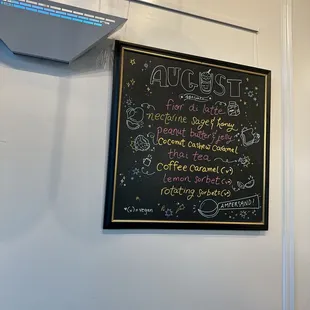 AUGUST
fior di latte
nectarine sage & honey
peanut butter & jelly
coconut cashew caramel
thai tea
coffee caramel (v)
lemon sorbet (v)
rotating sorbets (v)
(v) = vegan
AMPERSAND!